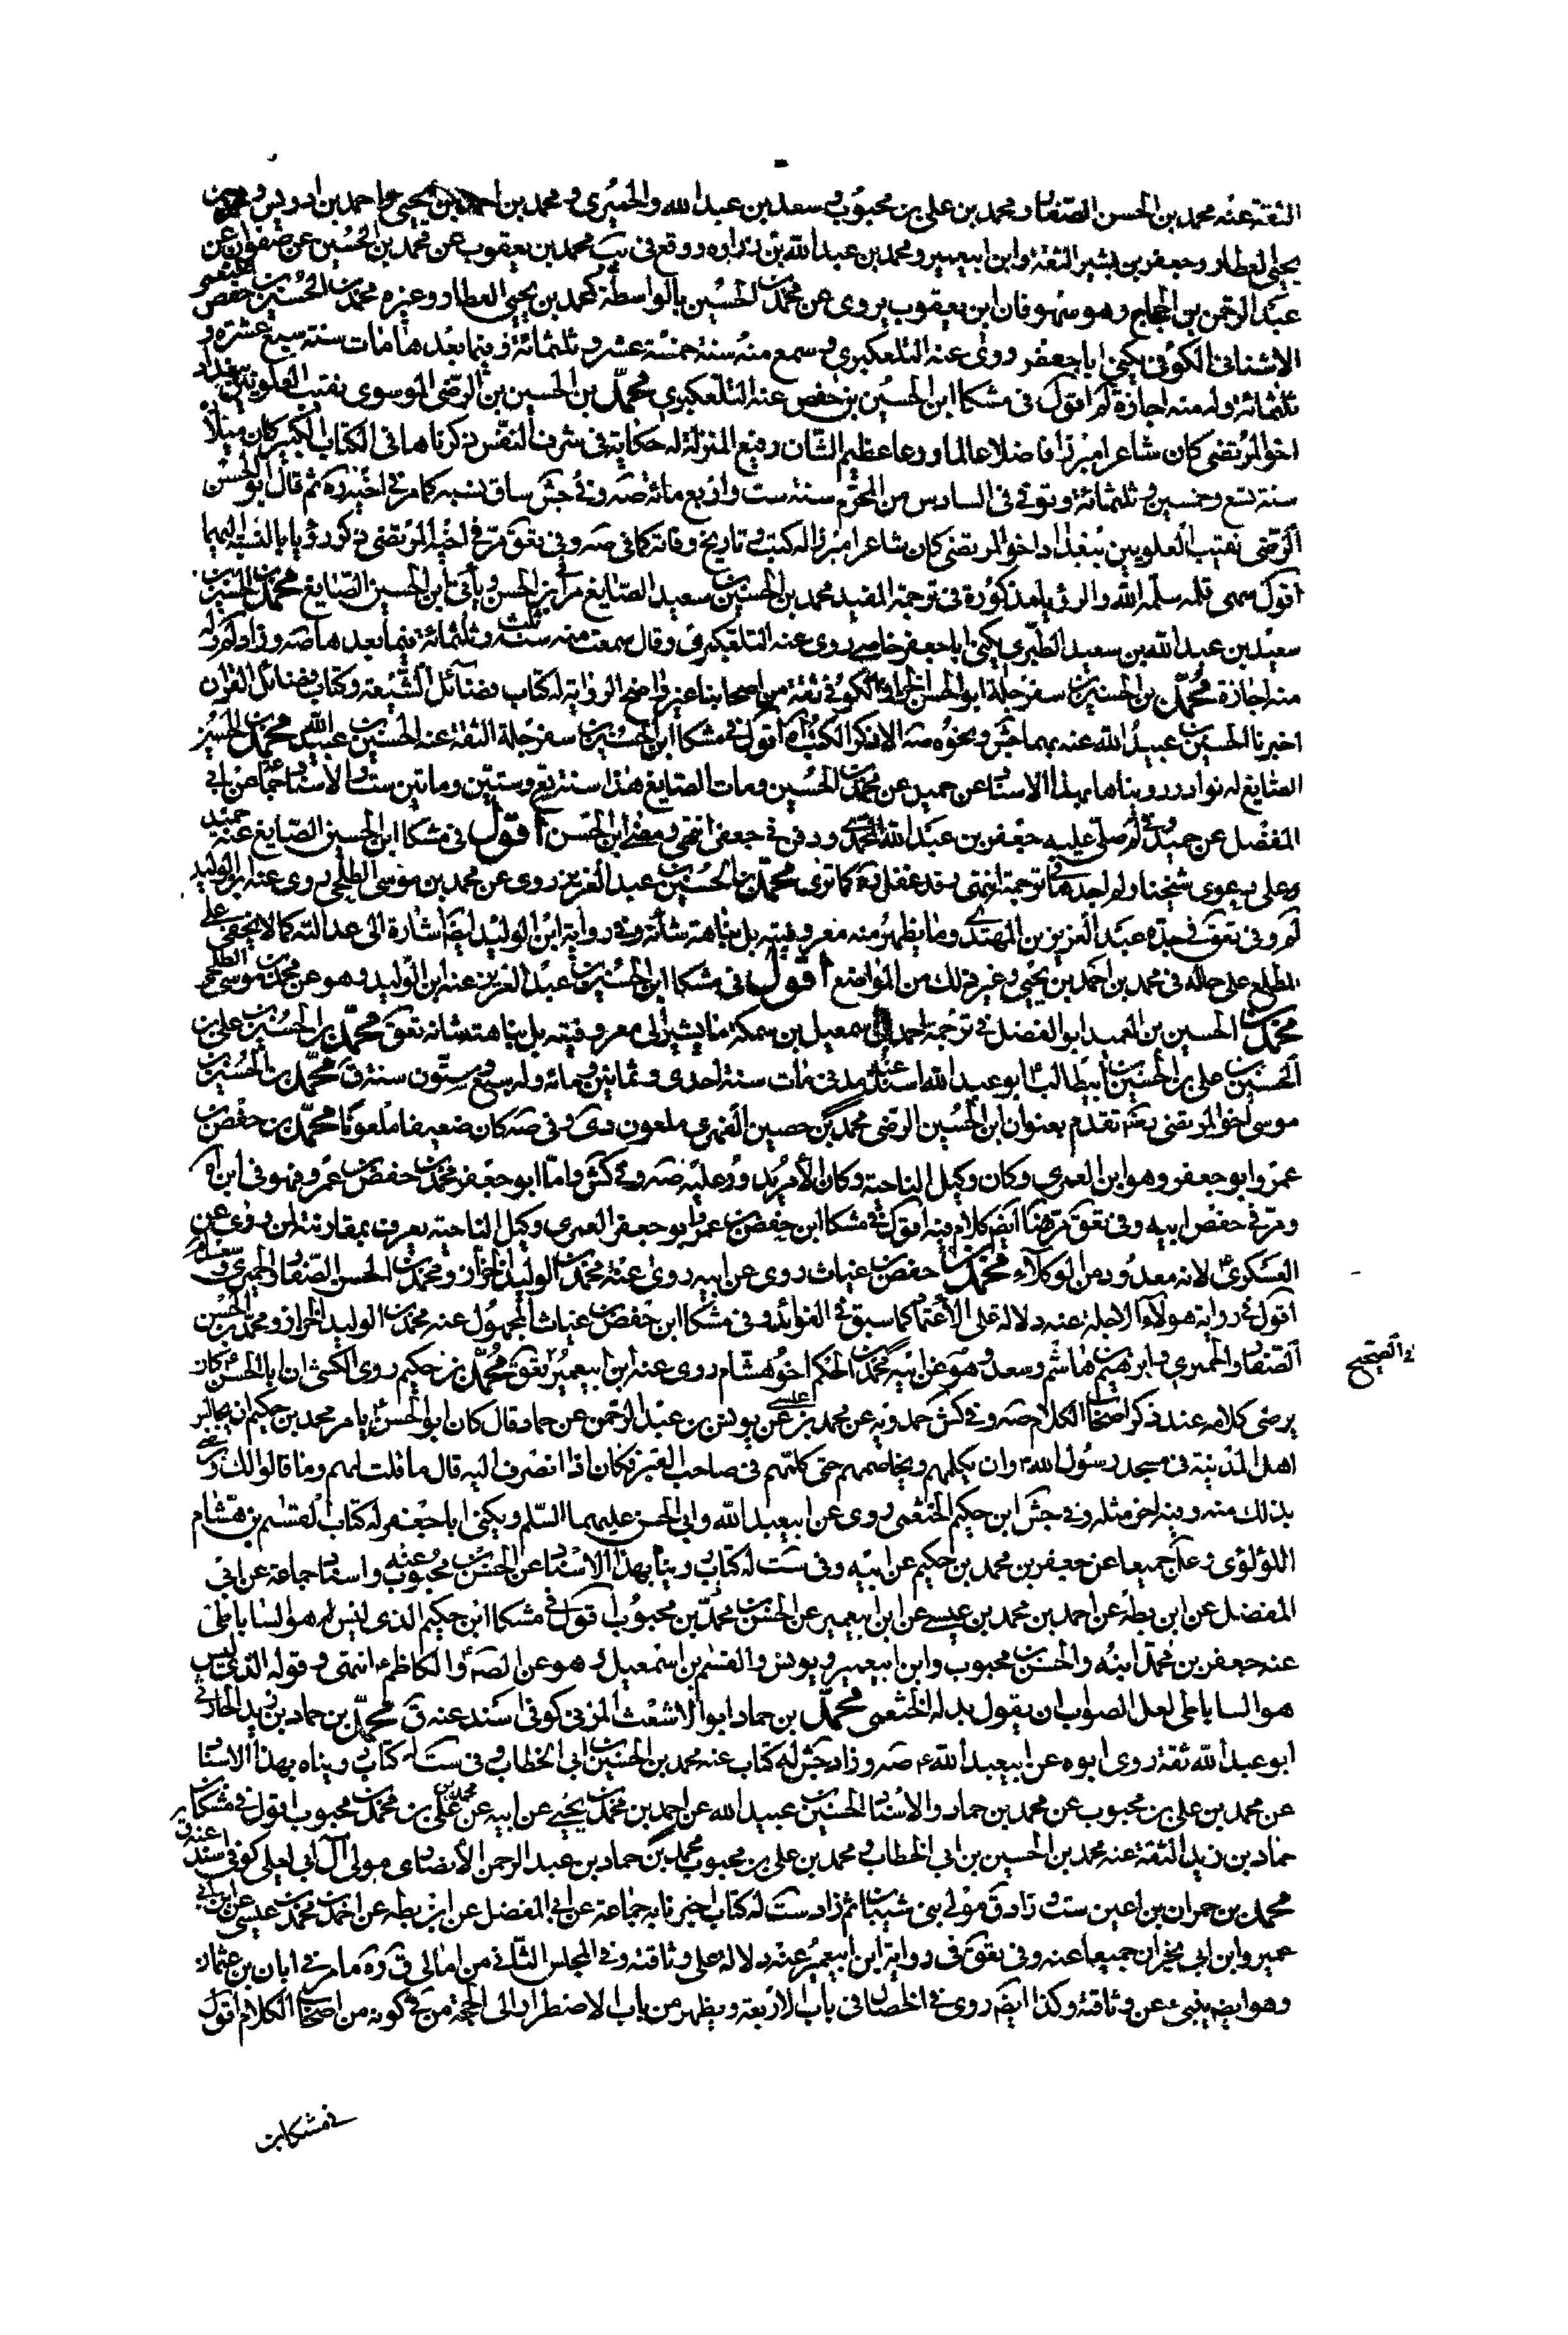 الثقة عنه محمد بن الحسن الصفار ومحمد بن علي بن محبوب وسعد بن عبد الله والحميري ومحمد بن احمد بن يحيى واحمد بن ادريس ومحمد بن
يحيى العطار وجعفر بن بشير الثقة وابن ابيعمير ومحمد بن عبد الله بن زراره ووقع في يب محمد بن يعقوب عن محمد بن الحسين عن صفوان عن
عبد الرحمن بن الحجاج وهو سهو فان ابن يعقوب يروى عن محمد بن الحسين بالواسطة كمحمد بن يحيى العطار وغيره محمد بن الحسين بن حفص الخثعمي
الاشناني الكوفي يكنى ابا جعفر روى عنه التلعكبري وسمع منه سنة خمسة عشر وثلثمائة وفيما بعدها مات سنة سبع عشرة و
ثلثمائة وله منه اجازة لم اقول في مشكا ابن الحسين بن حفص عنه التلعكبري محمد بن الحسين بن الرضي الموسوى نقيب العلويين ببغداد
اخو المرتضى كان شاعرا مبرزا فاضلا عالما ورعا عظيم الشان رفيع المنزلة له حكاية في شرف النفس ذكرناها في الكتاب الكبير كان ميلاده
سنة تسع وخمسين وثلثمائة وتوفي في السادس من المحرم سنة ست واربع مائة صه وفي جش ساق نسبه كما مر في اخيه ره ثم قال ابو الحسن
الرضي نقيب العلويين ببغداد اخو المرتضى كان شاعرا مبرزا له كتب وتاريخ وفاته كما في صه وفي تعق مر في اخيه المرتضى ذكر رؤيا بالنسبة اليهما
اقول سهى قلمه سلمه الله والرؤيا مذكورة في ترجمة المفيد محمد بن الحسين بن سعيد الصايغ مر في ابن الحسن ويأتي ابن الحسين الصايغ محمد بن الحسين بن
سعيد بن عبد الله بن سعيد الطبري يكنى ابا جعفر خاصي روى عنه التلعكبري وقال سمعت منه سنة ثلث وثلثمائة فيما بعدها صه وزاد لم وله
منه اجازة محمد بن الحسين بن سفرجلة ابو الحسن الخزاز الكوفي ثقة من اصحابنا عين واضح الرواية له كتاب فضائل الشيعة وكتاب فضائل القران
اخبرنا الحسين بن عبيد الله عنه بهما جش ونحوه صه الا ذكر الكتب اقول في مشكا ابن الحسين بن سفرجلة الثقة عنه الحسين بن عبيد الله محمد بن الحسين
الصايغ له نوادر رويناها بهذا الاسناد عن حميد عن محمد بن الحسين ومات الصايغ هذا سنة تسع وستين وماتين ست والاسناد جماعة عن ابي
المفضل عن حميد وفي لم صلى عليه جعفر بن عبد الله المحمدي ودفن في جعفي انتهى ومضى ابن الحسن اقول في مشكا ابن الحسين الصايغ عنه حميد
وعلى دعوى شيخنا ولم اجد ها ترجمة انتهى وقد غفل ره كما ترى محمد بن الحسين بن عبد العزيز روى عن محمد بن موسى الطلحي روى عنه ابن الوليد
لم وفي تعق في جده عبد العزيز بن المهتدي وما يظهر منه معروفيته بل نباهة شأنه وفي رواية ابن الوليد ايضا اشارة الى عدالته كما لا يخفى على
المطلع على حاله في محمد بن احمد بن يحيى وغير ذلك من المواضع اقول في مشكا ابن الحسين بن عبد العزيز عنه ابن الوليد وهو عن محمد بن موسى الطلحي
محمد بن الحسين بن العميد ابو الفضل في ترجمة احمد بن اسمعيل بن سمكة ما يشير الى معروفيته بل نباهة شانه تعق محمد بن الحسين بن علي بن
الحسين بن علي بن الحسين بن ابيطالب ع ابو عبد الله اسند عنه مدني مات سنة احدى وثمانين ومائة وله سبع وستون سنة ق محمد بن الحسين بن
موسى اخو المرتضى بغد تقدم بعنوان ابن الحسين الرضي محمد بن حصين الفهري ملعون دى وفي صه كان ضعيفا ملعونا محمد بن حفص بن
عمرو ابو جعفر وهو ابن العمري وكان وكيل الناحية وكان الامر يدور عليه صه وفي كش واما ابو جعفر محمد بن حفص بن عمرو فهو في ابن
ومر في حفص ابيه وفي تعق مر هنا ايضا كلام فيه اقول في مشكا ابن حفص بن عمرو ابو جعفر العمري وكيل الناحية يعرف بمقارنته لمن روى عن
العسكري ع لانه معدود من الوكلاء محمد بن حفص بن غياث روى عن ابيه روى عنه محمد بن الوليد الخزاز ومحمد بن الحسن الصفار والحميري وسعد لم
اقول في رواية هولآء الاجلة عنه دلالة على الاعتماد كما سبق في الفوائد وفي مشكا ابن حفص بن غياث المجهول عنه محمد بن الوليد الخزاز ومحمد بن الحسن
الصفار والحميري وابرهيم بن هاشم وسعد وهو عن ابيه محمد بن الحكم اخو هشام روى عنه ابن ابيعمير تعق محمد بن حكيم روى الكشي ان ابا الحسن ع كان
في الصحيح
يرضى كلامه عند ذكر اصحاب الكلام صه وفي كش حمدويه عن محمد بن عيسى عن يونس بن عبد الرحمن عن حماد قال كان ابو الحسن ع يامر محمد بن حكيم ان يجالس
اهل المدينة في مسجد رسول الله ص وان يكلمهم ويخاصمهم حتى كلمهم في صاحب القبر فكان اذا انصرف اليه قال ما قلت لهم وما قالوا لك ورضي
بذلك منه وفيه اخر مثله وفي جش ابن حكيم الخثعمي روى عن ابيعبد الله وابي الحسن عليهما السلم ويكنى ابا جعفر له كتاب القسم بن هشام
اللؤلؤى وعلان جميعا عن جعفر بن محمد بن حكيم عن ابيه وفي ست له كتاب رويناه بهذا الاسناد عن الحسن بن محبوب عنه واسناد جماعة عن ابي
المفضل عن ابن بطة عن احمد بن محمد بن عيسى عن ابن ابيعمير عن الحسن بن محمد بن محبوب اقول في مشكا ابن حكيم الذي ليس هو الساباطي
عنه جعفر بن محمد ابنه والحسن بن محبوب وابن ابيعمير ويونس والقسم بن اسمعيل وهو عن الصه والكاظم ع انتهى وقوله الذي ليس
هو الساباطي لعل الصواب ان يقول بدله الخثعمي محمد بن حماد ابو الاشعث المزني كوفي اسند عنه ق محمد بن حماد بن زيد الحارثي
ابو عبد الله ثقة روى ابوه عن ابيعبد الله ع صه وزاد جش له كتاب عنه محمد بن الحسين بن ابي الخطاب وفي ست له كتاب رويناه بهذا الاسناد
عن محمد بن علي بن محبوب عن محمد بن حماد والاسناد الحسين بن عبيد الله عن احمد بن محمد بن يحيى عن ابيه عن محمد بن علي بن محبوب اقول في مشكا بن
حماد بن زيد الثقة عنه محمد بن الحسين بن ابي الخطاب ومحمد بن علي بن محبوب محمد بن حماد بن عبد الرحمن الانصارى مولى آل ابي ليلى كوفي اسند عنه ق
محمد بن حمران بن اعين ست وزاد ق مولى بني شيبان ثم زاد ست له كتاب اخبرنا به جماعة عن ابي المفضل عن ابن بطة عن احمد بن محمد بن عيسى عن ابن ابي
عمير وابن ابي نجران جميعا عنه وفي تعق في رواية ابن ابيعمير عنه دلالة على وثاقته وفي المجلس الثاني من امالي ق ره ما مر في ابان بن عثمان
وهو ايضا ينبىء عن وثاقته وكذا ايضا روى في الخصال في باب الاربعة ويظهر من باب الاضطرار الى الحجة من في كونه من اصحاب الكلام اقول
في مشكا بن